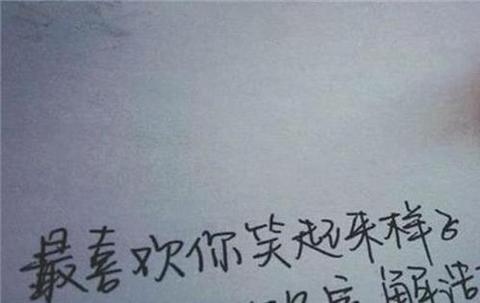 最喜欢你笑起来样子
解